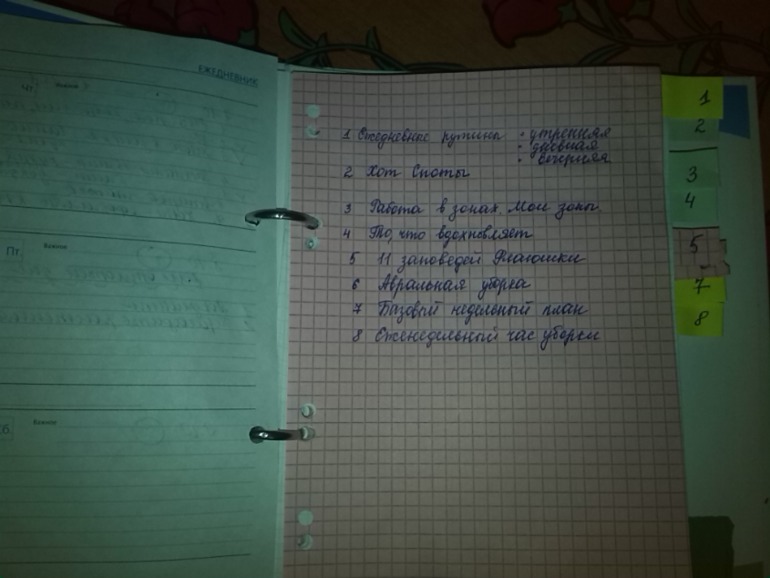 ЕЖЕДНЕВНИК
Чт.
Важное
Пт.
Важное
Сб.
Важное
1 Ежедневные рутины • утренняя
• дневная
• вечерняя
2 Хот Споты
3 Работа в зонах. Мои зоны.
4 То, что вдохновляет
5 11 заповедей Флаюшки
6 Авральная уборка
7 Базовый недельный план
8 Еженедельный час уборки
1
2
3
4
5
7
8